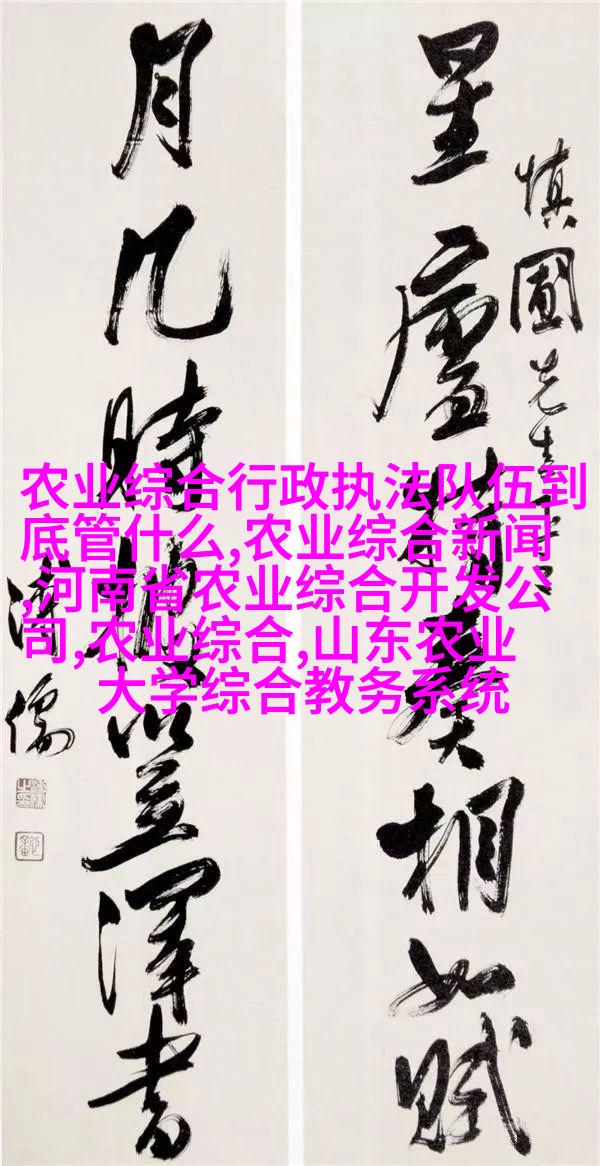 慎圃先生
星廬奏相如賦
月几時笠澤書
溥儒
农业综合行政执法队伍到
底管什么,农业综合新闻
,河南省农业综合开发公
司,农业综合,山东农业
大学综合教务系统